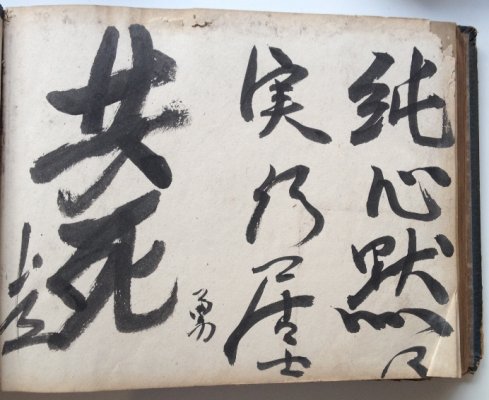 純心黙々
実行居士
勇
共死